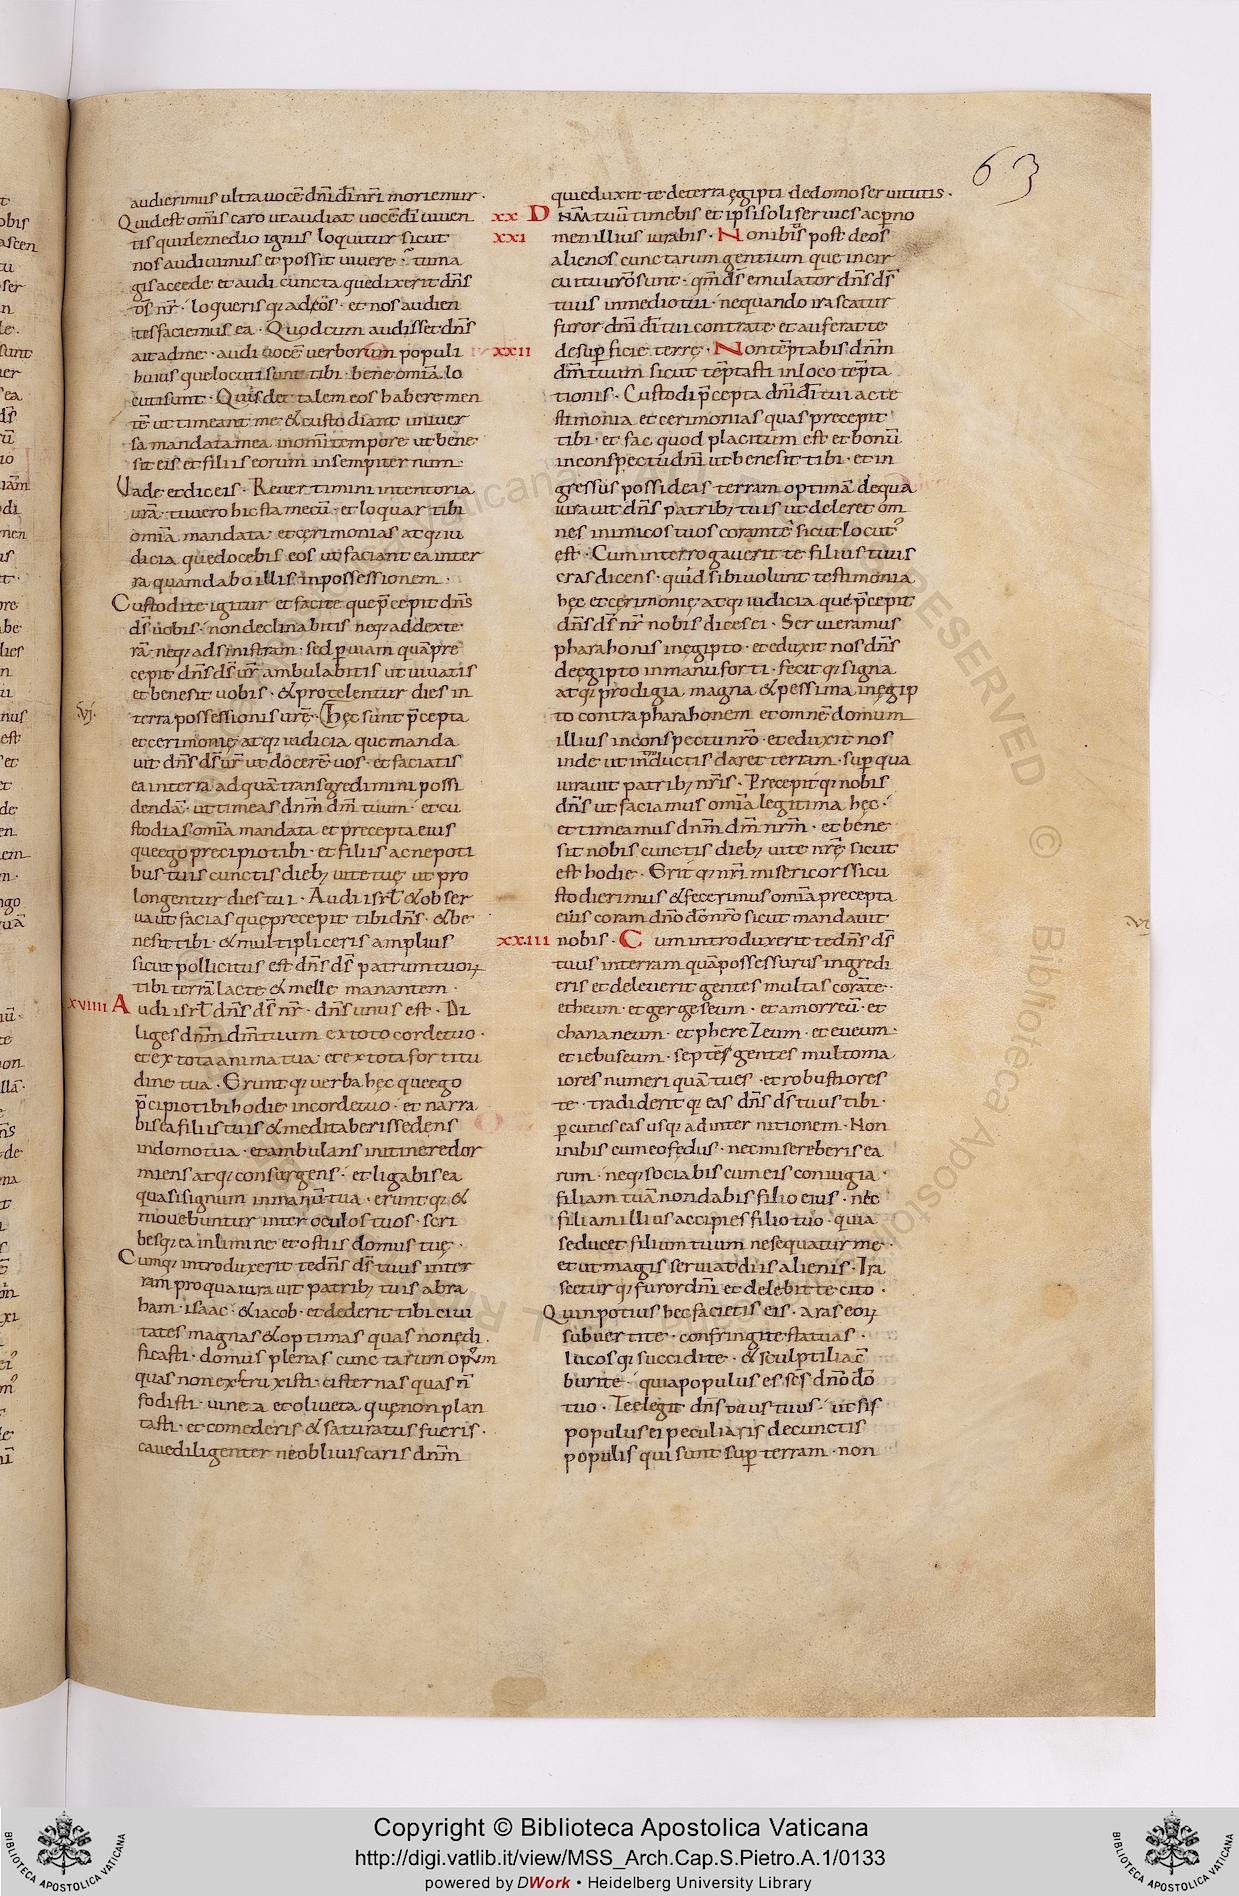 63
audierimus ultra uocē dn̄i dī nr̄i moriemur·
Quid est om̄is caro ut audiat uocē dī uiuen
tis qui de medio ignis loquitur sicut
nos audiuimus et possit uiuere· tu ma
gis accede· et audi cuncta que dixerit dn̄s
ds̄ nr̄· loquerisq; ad eos· et nos audien
tes faciemus ea· Quod cum audisset dn̄s
ait ad me· audi uocē uerborum populi
huius que locuti sunt tibi· bene om̄ia lo
cuti sunt· Quis det talem eos habere men
tē ut timeant me· & custodiant uniuer
sa mandata mea in om̄i tempore· ut bene
sit eis et filiis eorum in sempiternum·
Vade et dic eis· Reuertimini in tentoria
ur̄a· tu uero hic sta mecū· et loquar tibi
om̄ia mandata· et cęrimonias atq; iu
dicia que docebis eos ut faciant ea in ter
ra quam dabo illis in possessionem·
Custodite igitur et facite que p̄cepit dn̄s
ds̄ uobis· non declinabitis neq; ad dexte
rā· neq; ad sinistram· sed p̱ uiam quā pre
cepit dn̄s ds̄ ur̄ ambulabitis ut uiuatis
et bene sit uobis· & protelentur dies in
terra possessionis ur̄ę· Hęc sunt p̄cepta
VI·
et cerimonię atq; iudicia que manda
uit dn̄s ds̄ ur̄ ut docerē uos· et faciatis
ea in terra ad quā transgredimini possi
dendā· ut timeas dnm̄ dm̄ tuum· et cu
stodias om̄ia mandata et precepta eius
que ego precipio tibi· et filiis ac nepoti
bus tuis cunctis dieb; uite tuę· ut pro
longentur dies tui· Audi isrl̄ & obser
ua ut facias que precepit tibi dn̄s· & be
ne sit tibi· & multipliceris amplius
sicut pollicitus est dn̄s ds̄ patrum tuoꝝ
tibi terrā lacte & melle manantem·
XVIIII Audi isrl̄ dn̄s ds̄ nr̄· dn̄s unus est· Di
liges dnm̄ dm̄ tuum ex toto corde tuo·
et ex tota anima tua· et ex tota fortitu
dine tua· Eruntq; uerba hęc que ego
p̄cipio tibi hodie in corde tuo· et narra
bis ea filiis tuis & meditaberis sedens
in domo tua· et ambulans in itinere dor
miens atq; consurgens· et ligabis ea
quasi signum in manū tua· eruntq; &
mouebuntur inter oculos tuos· scri
besq; ea in limine et ostiis domus tuę·
Cumq; introduxerit te dn̄s ds̄ tuus in ter
ram pro qua iurauit patrib; tuis abra
ham· isaac· & iacob· et dederit tibi ciui
tates magnas & optimas quas non ędi
ficasti· domus plenas cunctarum opum
quas non extruxisti· cisternas quas n̄
fodisti· uinea et oliueta quę non plan
tasti· et comederis & saturatus fueris·
caue diligenter ne obliuiscaris dnm̄
qui eduxit te de terra ęgipti de domo seruitutis·
XX Dnm̄ tuū timebis et ipsi soli seruies ac p̱ no
XXI men illius iurabis· Non ibitis post deos
alienos cunctarum gentium que in cir
cuitu uro sunt· qm̄ ds̄ emulator dn̄s ds̄
tuus in medio tui· nequando irascatur
furor dn̄i dī tui contra te et auferat te
XXII de sup̱ficie terrę· Non tēptabis dnm̄
dm̄ tuum sicut tēptasti in loco tēpta
tionis· Custodi p̄cepta dn̄i dī tui ac te
stimonia et cerimonias quas precepit
tibi· et fac quod placitum est et bonū
in conspectu dn̄i ut bene sit tibi· et in
gressus possideas terram optimā de qua
iurauit dn̄s patrib; tuis ut deleret om
nes inimicos tuos coram te sicut locut᾽
est· Cum interrogauerit te filius tuus
cras dicens· quid sibi uolunt testimonia
hęc et cęrimonię atq; iudicia que p̄cepit
dn̄s ds̄ nr̄ nobis dices ei· Seruieramus
pharahonis in ęgipto· et eduxit nos dn̄s
de ęgipto in manu forti· fecitq; signa
atq; prodigia magna & pessima in ęgip
to contra pharahonem et omnē domum
illius in conspectu nr̄o· et eduxit nos
inde ut introductis daret terram· sup̱ qua
iurauit patrib; nr̄is· Precepitq; nobis
dn̄s ut faciamus om̄ia legitima hęc·
et timeamus dnm̄ dm̄ nrm̄· et bene
sit nobis cunctis dieb; uite nr̄ę sicut
est hodie· Eritq; nr̄i misericors si cu
stodierimus & fecerimus om̄ia precepta
eius coram dn̄o dō nr̄o sicut mandauit
XXIII nobis· Cum introduxerit te dn̄s ds̄
tuus in terram quā possessurus ingredi
eris et deleuerit gentes multas corā te·
etheum· et gergeseum· et amorreū· et
chananeum· et pherezeum· et eueum·
et iebuseum· septē gentes multo ma
iores numeri quā tu es· et robustiores
te· tradideritq; eas dn̄s ds̄ tuus tibi·
p̱cuties eas usq; ad internitionem· Non
inibis cum eo fędus· nec misereberis ea
rum· neq; sociabis cum eis coniugia·
filiam tuā non dabis filio eius· nec
filiam illius accipies filio tuo· quia
seducet filium tuum ne sequatur me·
et ut magis seruiat diis alienis· Ira
seturq; furor dn̄i et delebit te cito·
Quin potius hęc facietis eis· aras eoꝝ
subuertite· confringite statuas·
lucosq; succidite· & sculptilia cō
burite· quia populus es scs̄ dn̄o dō
tuo· Te elegit dn̄s ds̄ tuus· ut sis
populus ei peculiaris de cunctis
populis qui sunt sup̱ terram· non
VI
Copyright © Biblioteca Apostolica Vaticana
http://digi.vatlib.it/view/MSS_Arch.Cap.S.Pietro.A.1/0133
powered by DWork • Heidelberg University Library